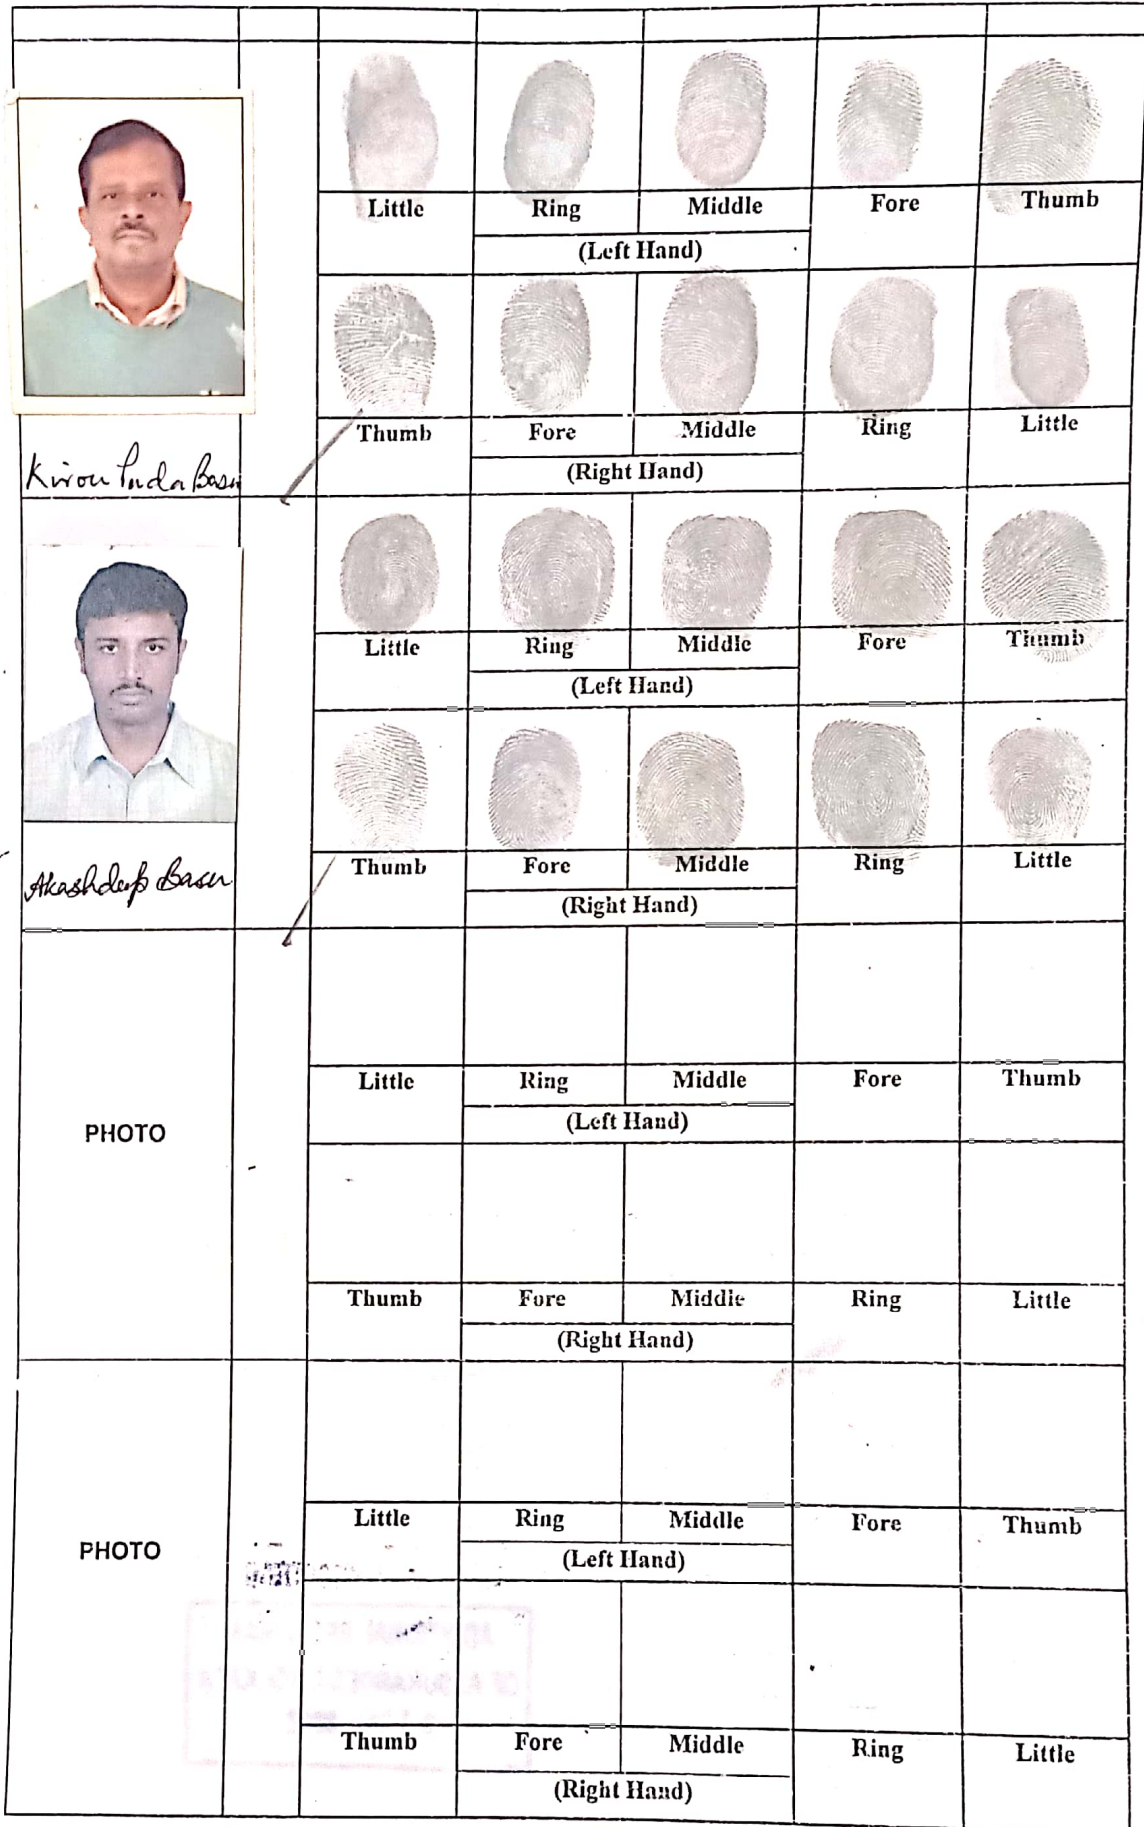 Little Ring Middle Fore Thumb
(Left Hand)
Thumb Fore Middle Ring Little
(Right Hand)
Basu
Little Ring Middle Fore Thumb
(Left Hand)
Thumb Fore Middle Ring Little
(Right Hand)
Akashdeep Basu
Little Ring Middle Fore Thumb
(Left Hand)
PHOTO
Thumb Fore Middle Ring Little
(Right Hand)
Little Ring Middle Fore Thumb
(Left Hand)
PHOTO
Thumb Fore Middle Ring Little
(Right Hand)